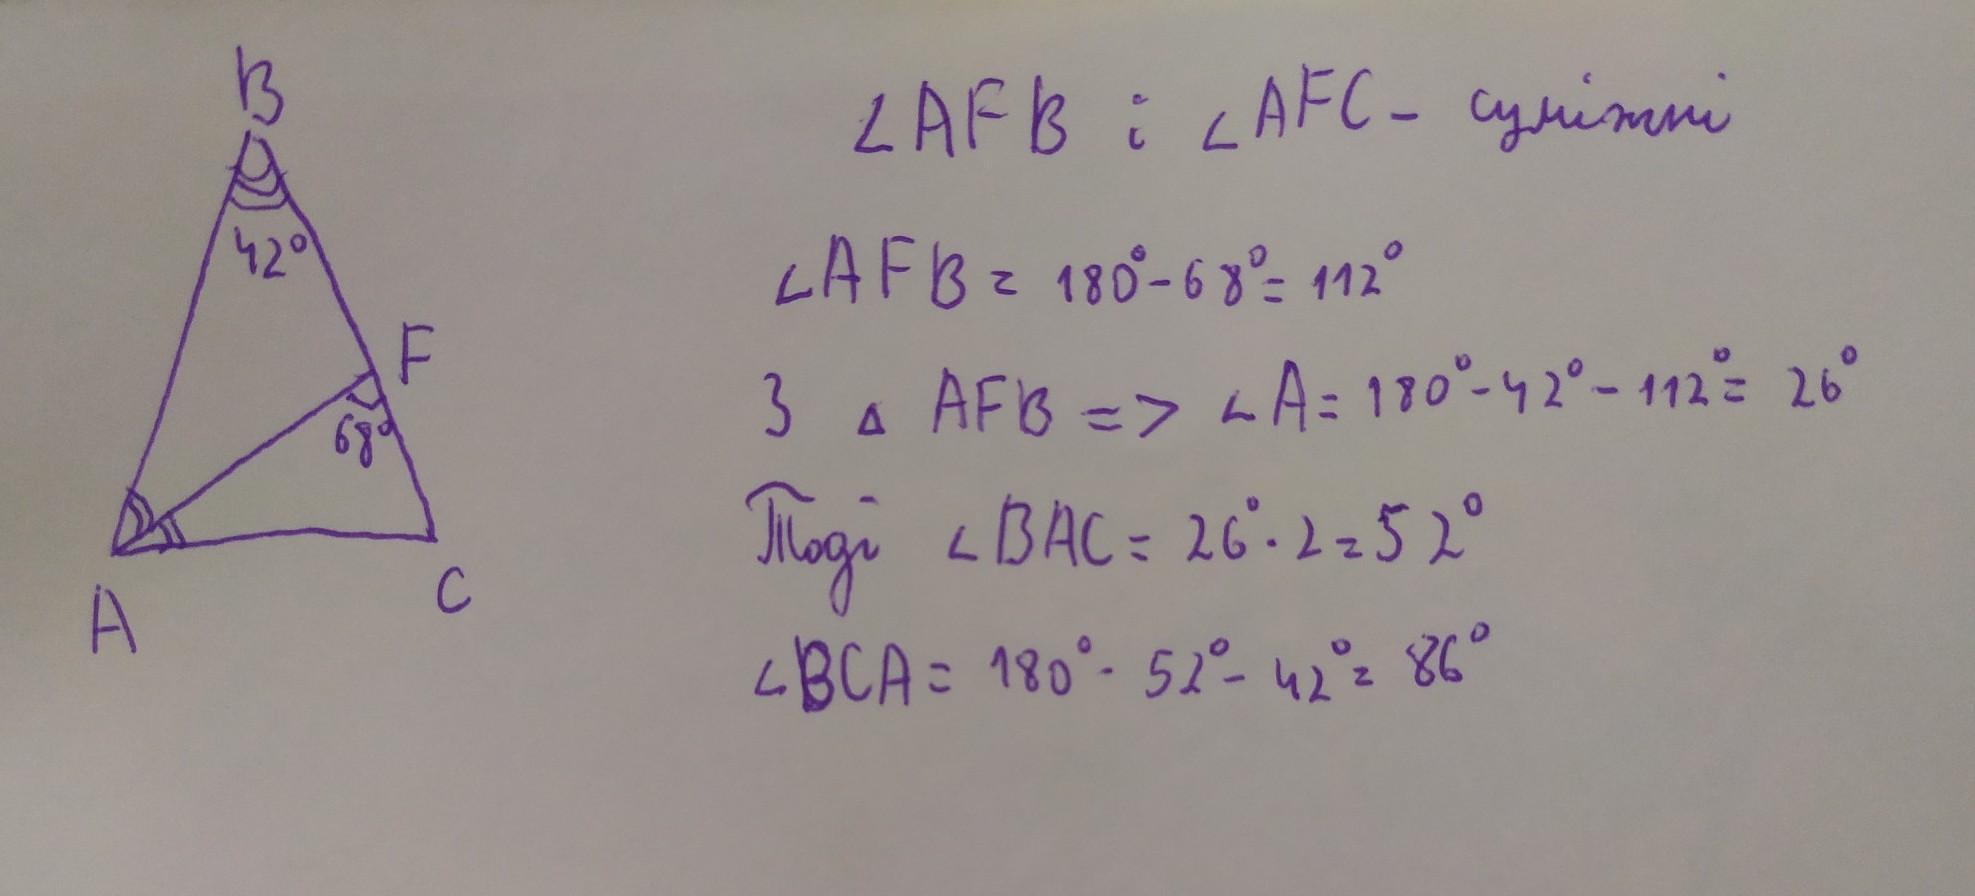 B
42°
F
68°
A
C
∠AFB і ∠AFC - суміжні
∠AFB = 180° - 68° = 112°
З △ AFB => ∠A = 180° - 42° - 112° = 26°
Тоді ∠BAC = 26° · 2 = 52°
∠BCA = 180° - 52° - 42° = 86°